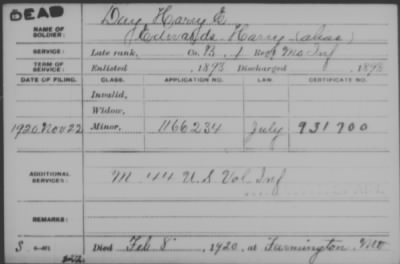 DEAD
NAME OF SOLDIER: Day, Harry E.
Edwards, Harry (alias)
SERVICE: Late rank, Co. B, 1 Reg't Mo Inf
TERM OF SERVICE: Enlisted 1898 Discharged , 1898
DATE OF FILING. CLASS. APPLICATION NO. LAW. CERTIFICATE NO.
Invalid,
Widow,
1920 Nov 22 Minor, 1166234 July 931700
ADDITIONAL SERVICES: M 44 U.S. Vol Inf
REMARKS:
S Died Feb 8 , 1920, at Farmington, Mo